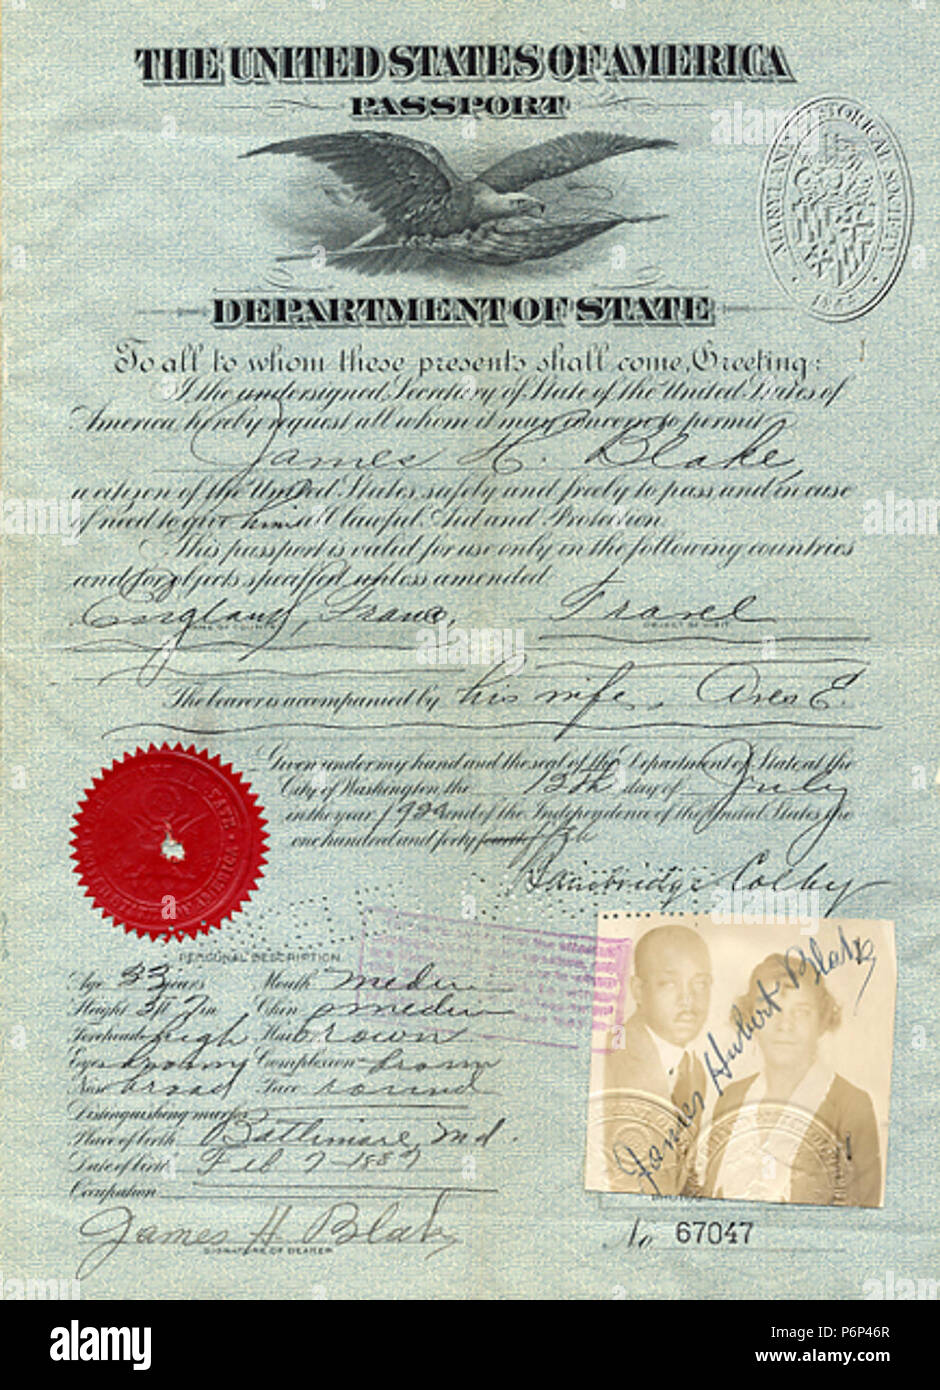 THE UNITED STATES OF AMERICA
PASSPORT
MARYLAND HISTORICAL SOCIETY
1844
DEPARTMENT OF STATE
To all to whom these presents shall come, Greeting:
I the undersigned, Secretary of State of the United States of
America hereby request all whom it may concern to permit
James H. Blake,
a citizen of the United States, safely and freely to pass and in case
of need to give him all lawful Aid and Protection
This passport is valid for use only in the following countries
and for objects specified, unless amended
England, France, Travel
NAME OF COUNTRY OBJECT OF VISIT
The bearer is accompanied by his wife, Ores E.
Given under my hand and the seal of the Department of State at the
City of Washington the 12th day of July
in the year 1920 and of the Independence of the United States the
one hundred and forty fourth fifth
Bainbridge Colby
PERSONAL DESCRIPTION
Age 33 years Mouth medium
Height 5 ft 7 in Chin medium
Forehead high Hair brown
Eyes brown Complexion brown
Nose broad Face round
Distinguishing marks
Place of birth Baltimore, Md.
Date of birth Feb 7-1887
Occupation
James H Blake
SIGNATURE OF BEARER
James Hubert Blake
No 67047
alamy
Image ID: P6P46R
www.alamy.com